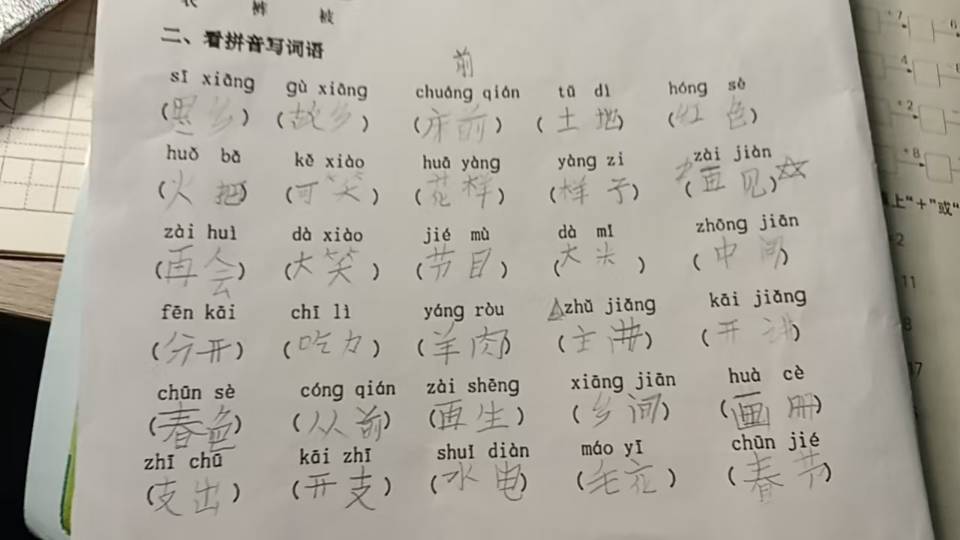 裤 被
二、看拼音写词语
前
sī xiāng gù xiāng chuáng qián tǔ dì hóng sè
(思乡) (故乡) (床前) (土地) (红色)
huǒ bǎ kě xiào huā yàng yàng zi zài jiàn
(火把) (可笑) (花样) (样子) (再见)
zài huì dà xiào jié mù dà mǐ zhōng jiān
(再会) (大笑) (节目) (大米) (中间)
fēn kāi chī lì yáng ròu zhǔ jiǎng kāi jiǎng
(分开) (吃力) (羊肉) (主讲) (开讲)
chūn sè cóng qián zài shēng xiāng jiān huà cè
(春色) (从前) (再生) (乡间) (画册)
zhī chū kāi zhī shuǐ diàn máo yī chūn jié
(支出) (开支) (水电) (毛衣) (春节)
上“+”或“